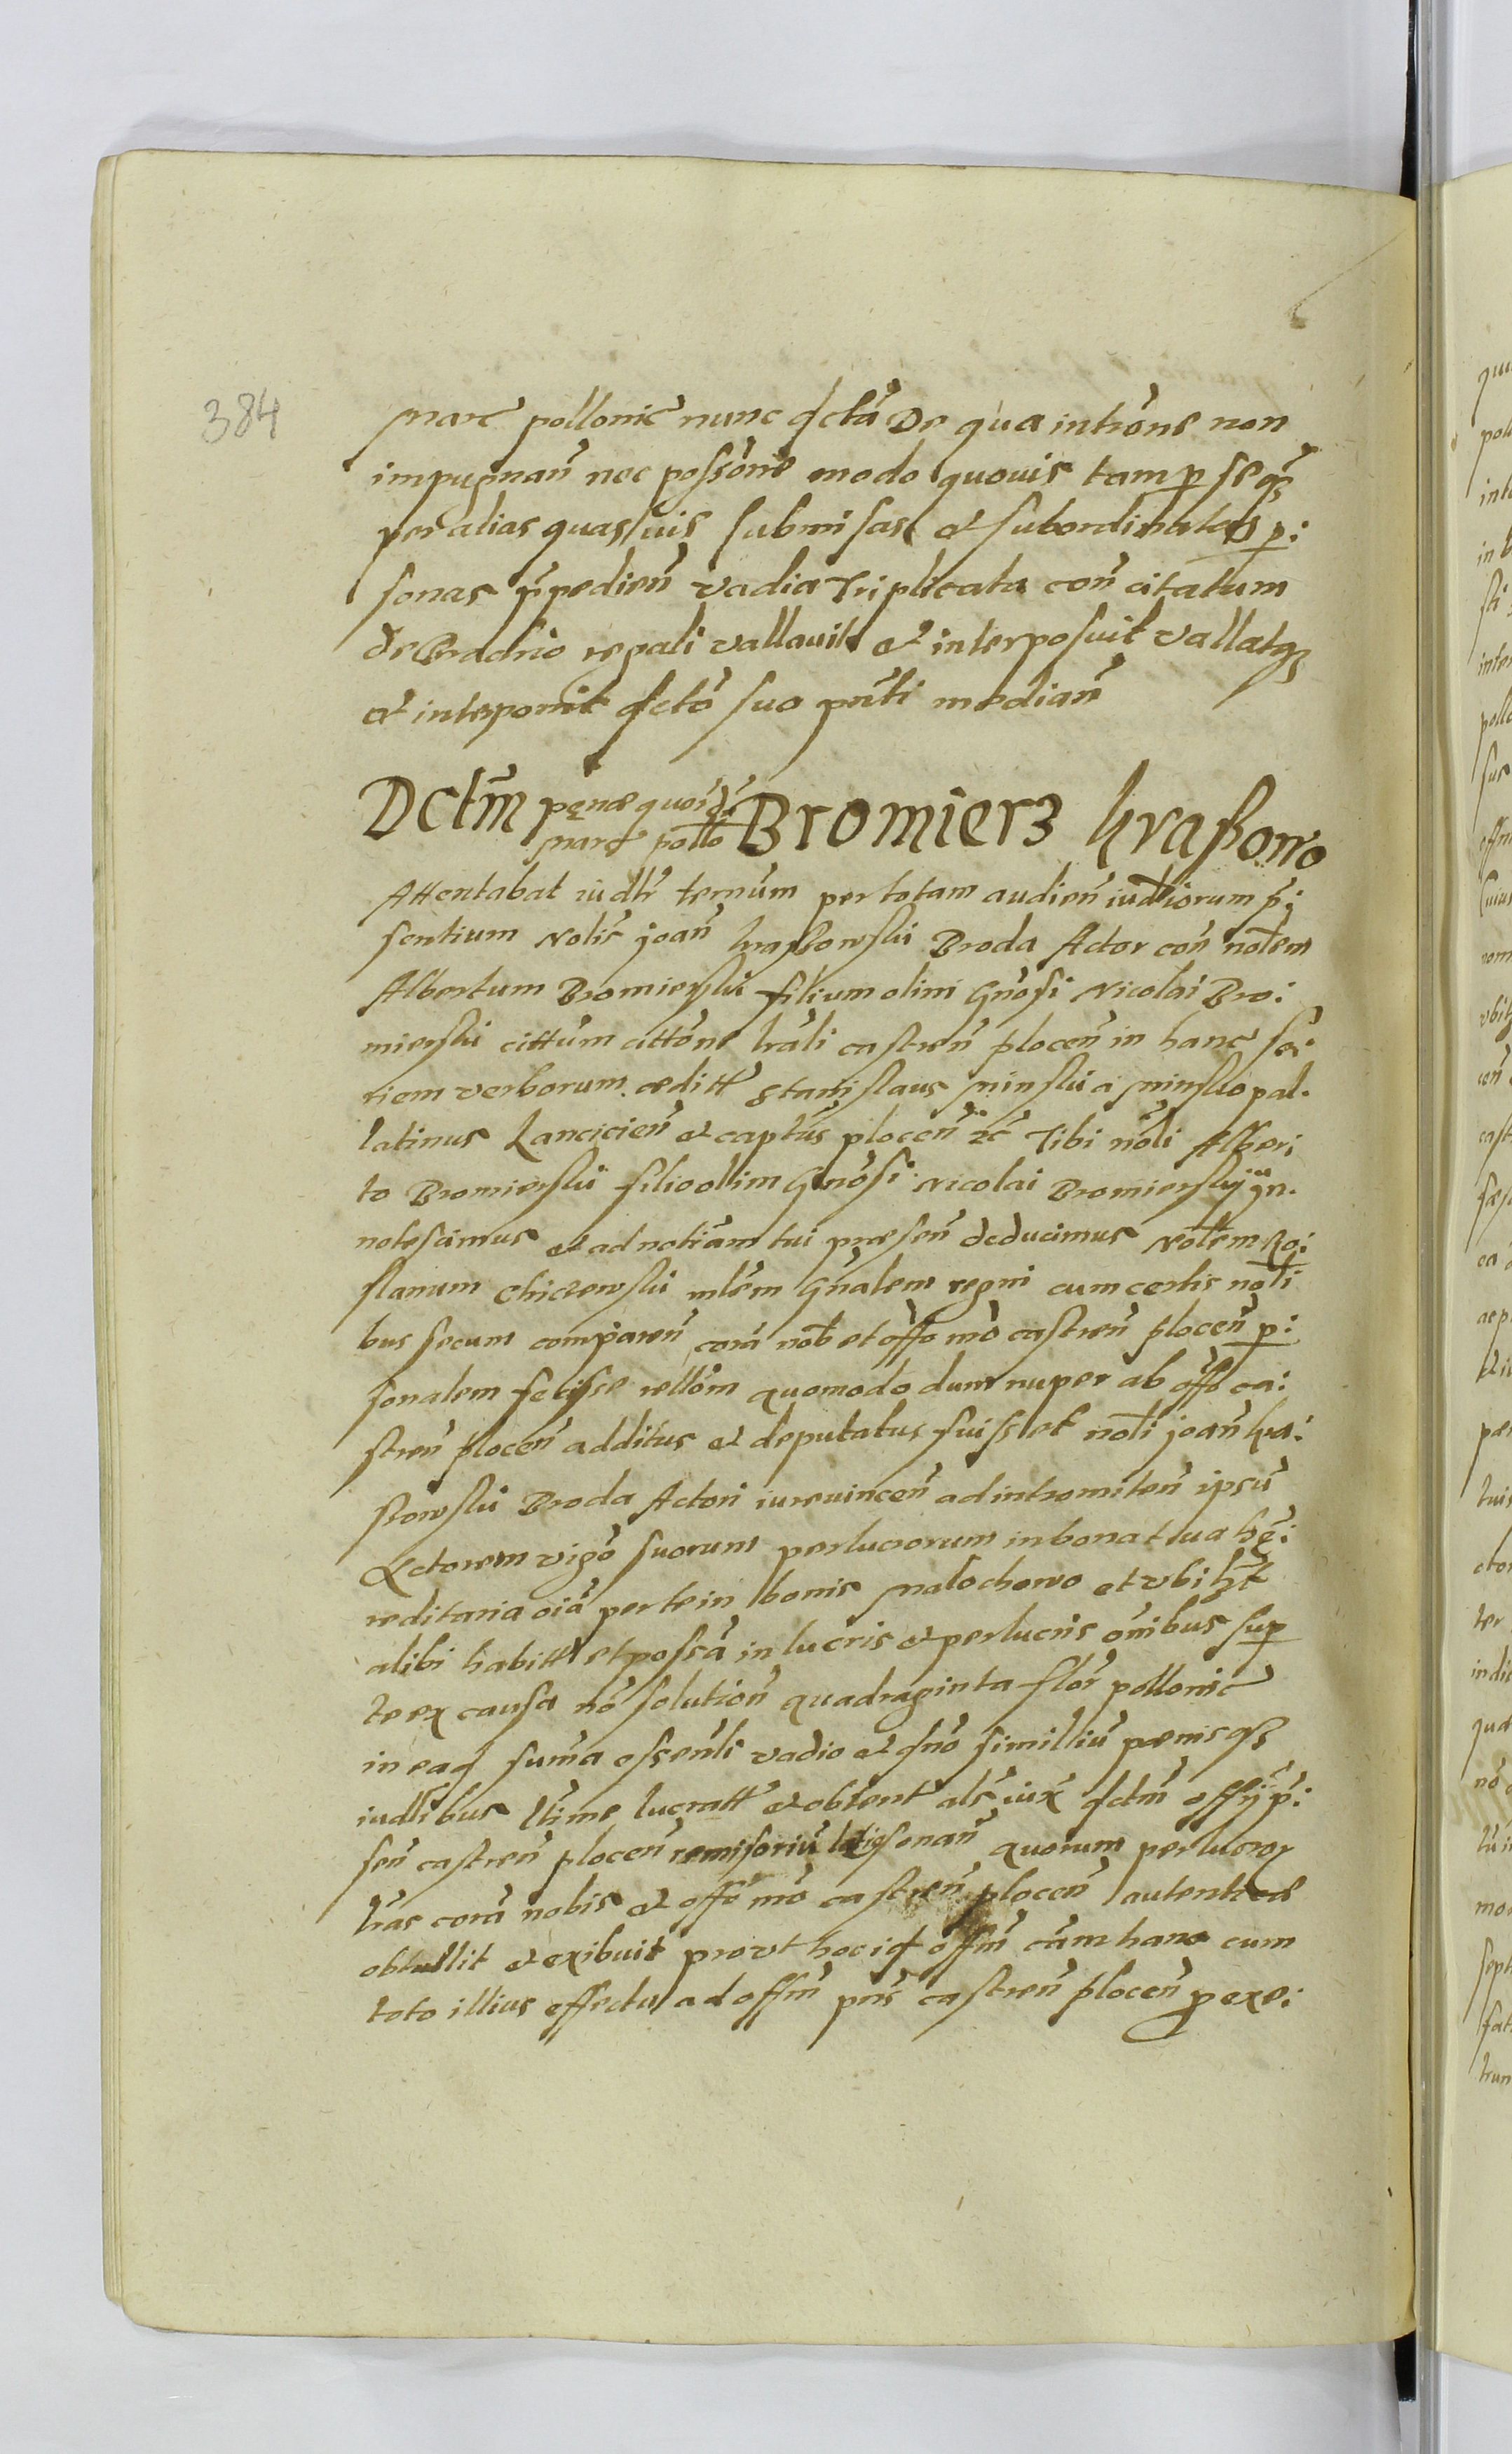 384
Marc pollonic nunc dctā De qua intrōne non
impugnan̄ nec possōne modo quovis tam p se q̄3
per alias quasvis submisas et subordinatas p:
sonas īpedien̄ vadia Triplicata con̄ citatum
de Bradrio regali vallavit et interposuit vallatq3
et interponit dctō suo pn̄ti median̄
Dctm̄ pęnæ quī
Marc pollo Bromierz kraßowo
Attentabat iudlr̄ termūm per totam audien̄ iudtiorum p̄:
sentium Nolis̄ joan̄ kraßowski Broda Actor con̄ nōlem
Albertum Bromierski filium olim Gn̄osi Nicolai Bro:
mierski cittūm cittōne lrāli castren̄ plocen̄ in hanc se:
riem verborum. æditt Stanislaus Minski a Minsko pal.
latinus Lancicien̄ et captūs plocen̄ 2c̄ Tibi nōli Alber:
to Bromierski filio olim Gnōsi Nicolai Bromierskij in.
notescimus et ad notiām tui præsen̄ deducimus Nolem Ro:
slanum Chiczewski mlēm Gn̄alem regni cum certis nōli
bus secum comparen̄ corā nob̄ et offo nrō castren̄ plocen̄ p:
sonalem fecisse rellōm quomodo dum nuper ab offō ca:
stren̄ plocen̄ additus et deputatus fuisset nōli joan̄ kra:
ßowski Broda Actori iurevincen̄ ad intromiten̄ ipsū
Actorem vigō suorum perlucrorum in bona tua hę:
reditaria oiā per te in bonis Malochowo et vbi
alibi habitt et possā in lucris et perlucris ōnibus sup
te ex causa nō solution̄ quadraginta flor̄ pollonic
in ead sum̄a essen̄li vadio et dn̄o similiū pænis q3
iudlibus ltime lucratt et obtent als̄ iux̄ dctm̄ offij p̄:
sen̄ castren̄ plocen̄ remisoriū latiq sonan̄ quorum perlucror
lrās corā nobis et offō nrō castren̄ plocen̄ autenticæ
obtullit et exibuit provt hoc id offm̄ cām hanc cum
toto illius effectu ad offm̄ pn̄s castren̄ plocen̄ p exe: